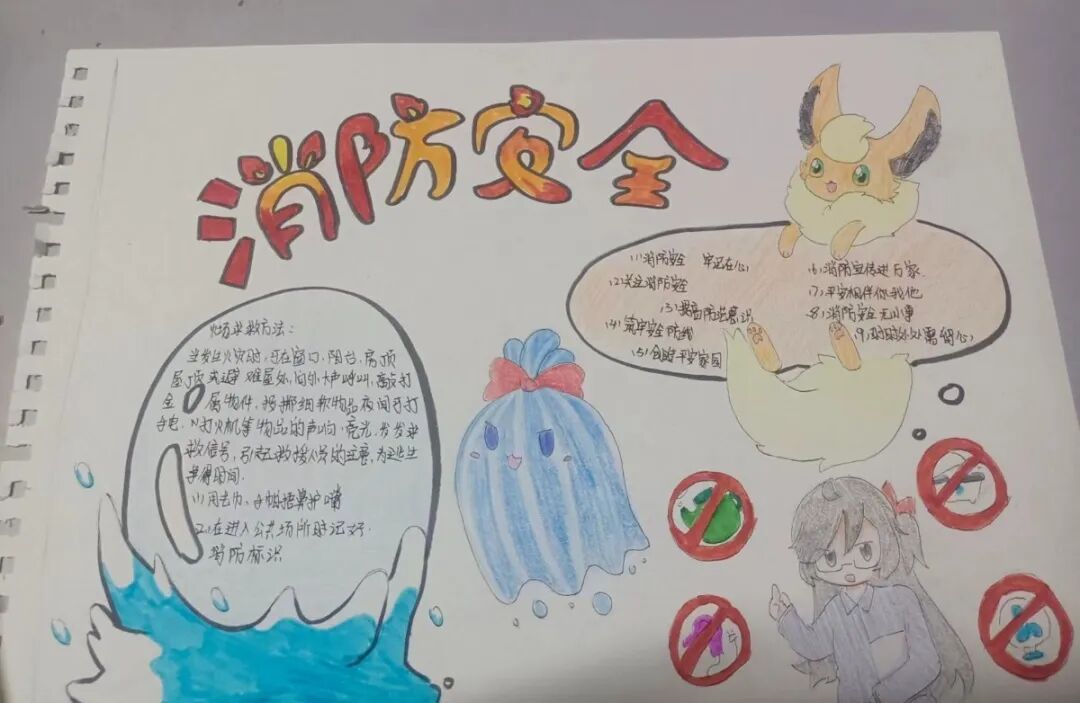 消防安全
火场求救方法：
当发生火灾时，可在窗口，阳台，房顶
屋顶或避难层处，向外大声呼叫，敲打
金属物件，投掷细软物品夜间可打
手电、打火机等物品的声响，亮光，发出求
救信号，引起救援人员的注意，为逃生
争得时间．
(1) 用毛巾、手帕捂鼻护嘴
2.在进入公共场所时记好
消防标识
(1) 消防安全 牢记在心
(2) 关注消防安全
(3) 提高防范意识
(4) 筑牢安全防线
(5) 创建平安家园
(6) 消防宣传进万家
(7) 平安相伴你我他
(8) 消防安全无小事
(9) 时时处处需留心